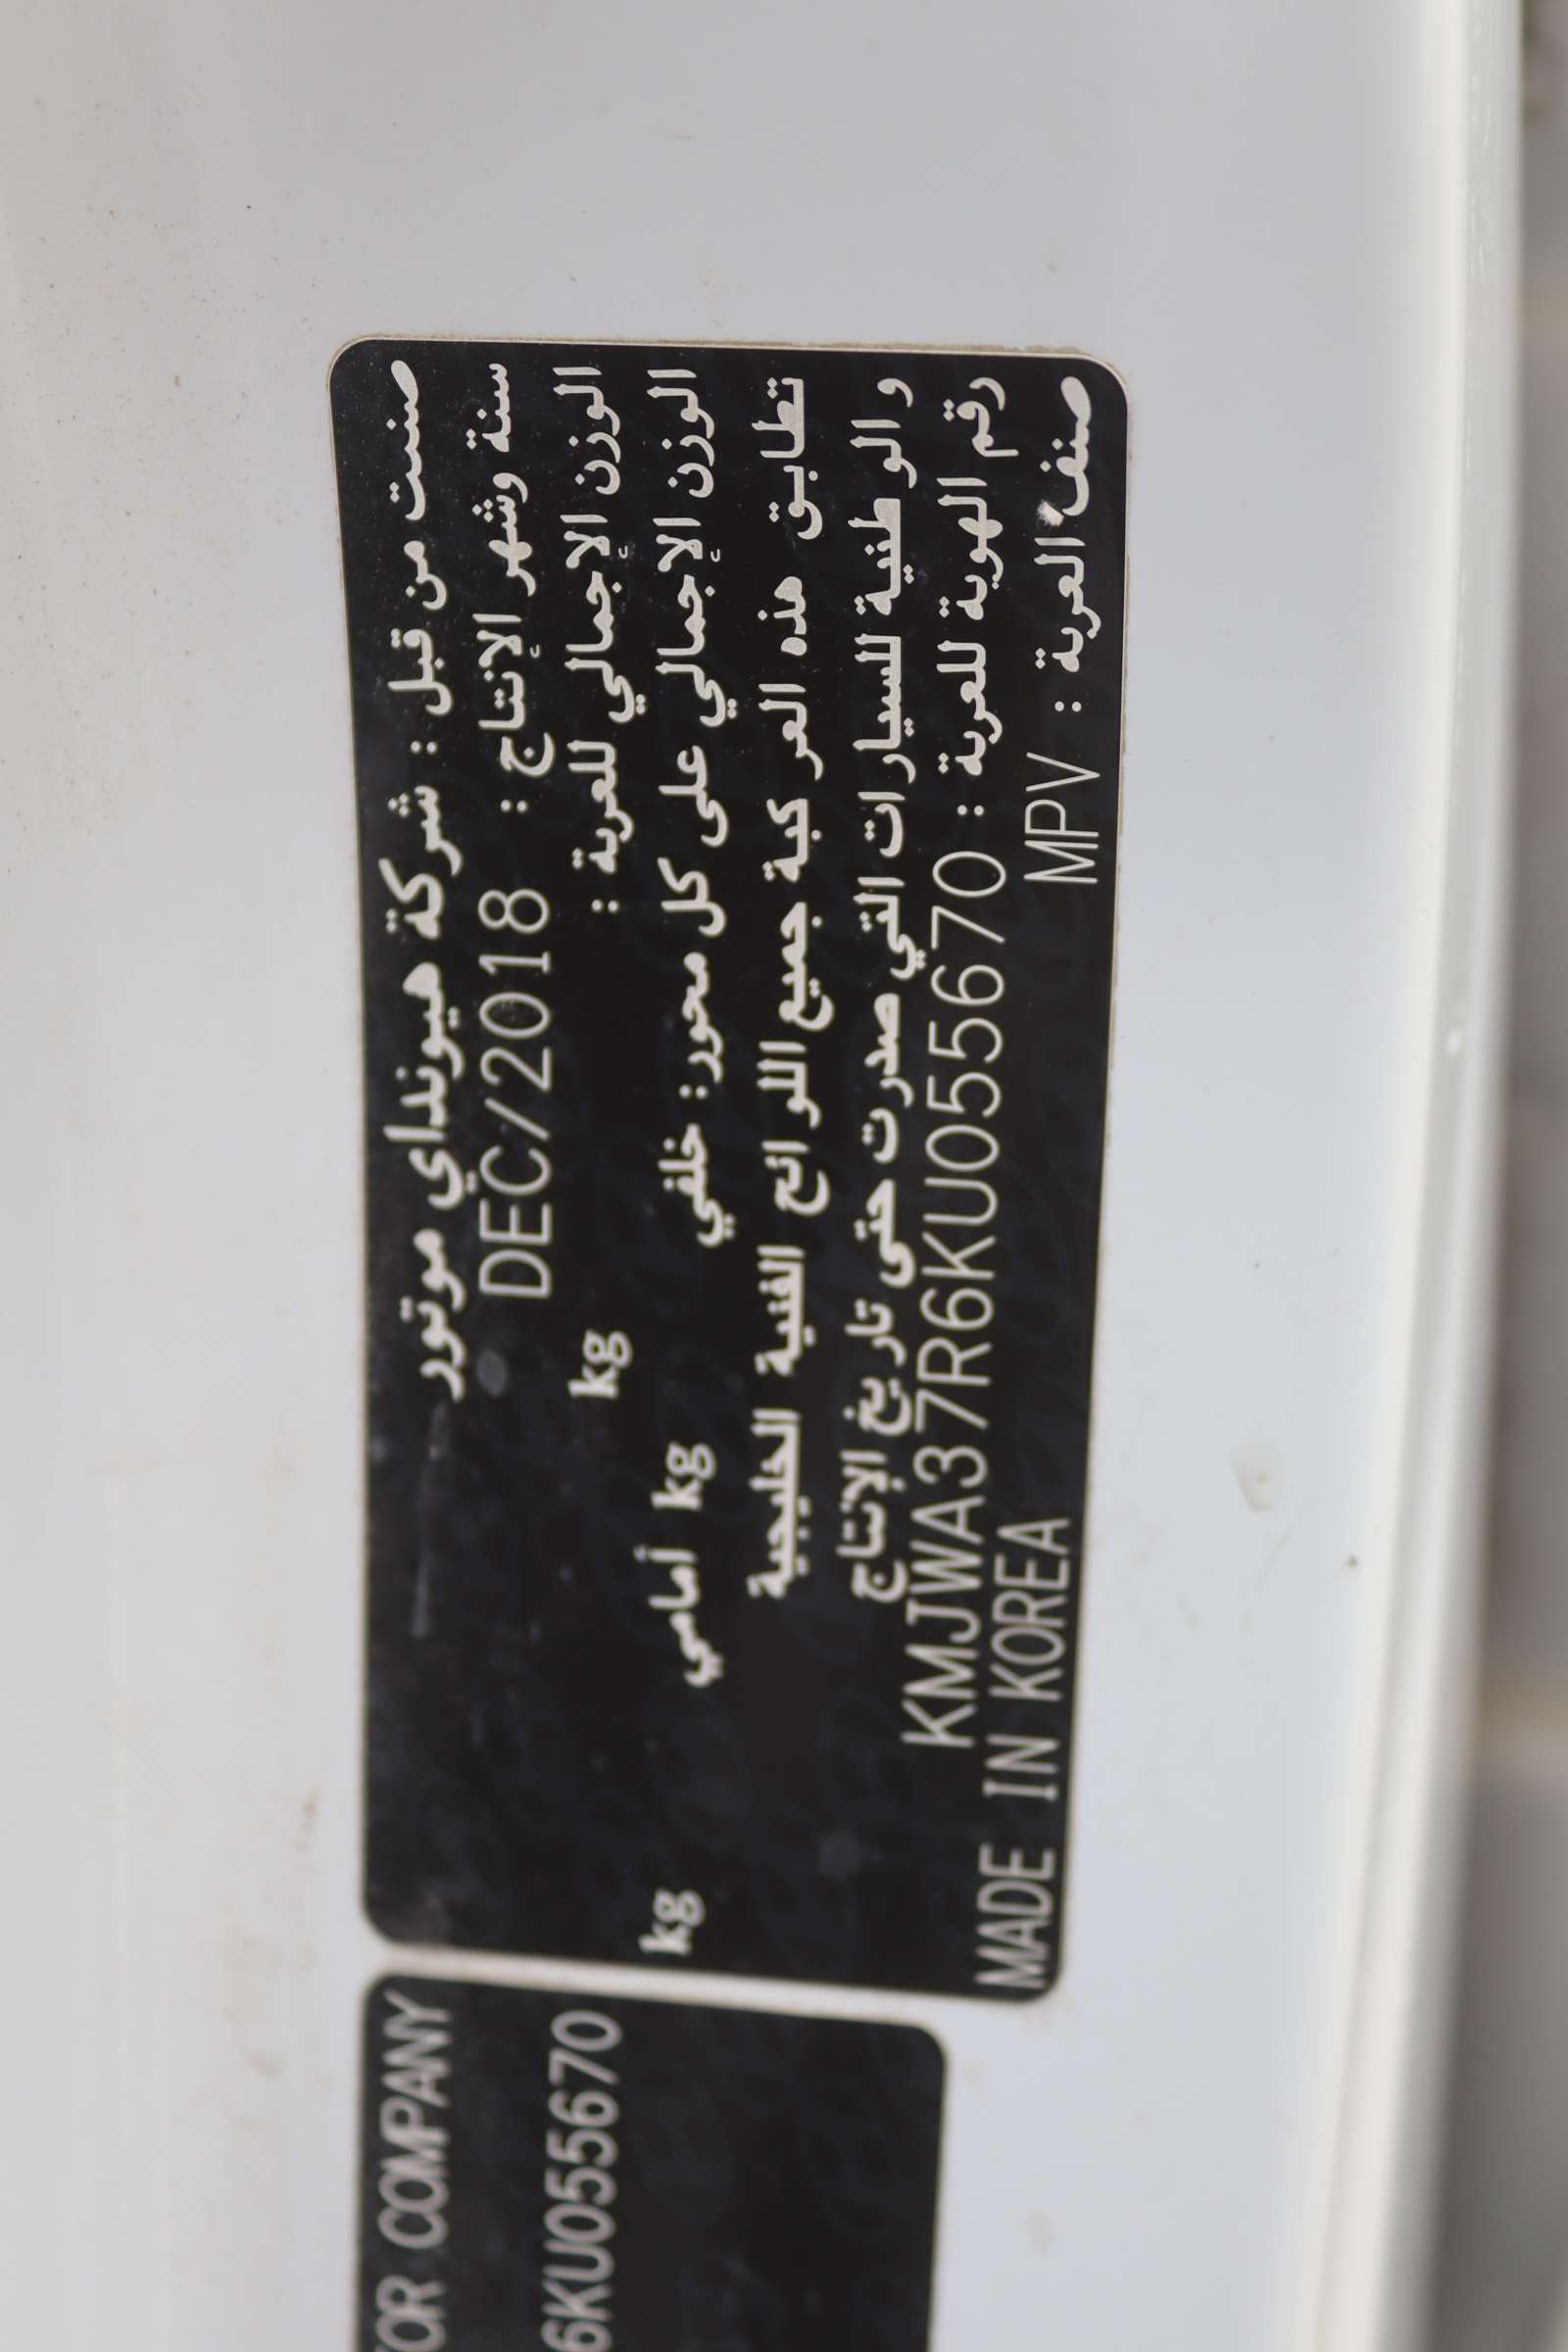 صنعت من قبل : شركة هيونداي موتور
سنة وشهر الإنتاج : DEC/2018
الوزن الإجمالي للعربة : kg
الوزن الإجمالي على كل محور : خلفي kg أمامي kg
تطابق هذه العركبة جميع اللوائح الفنية الخليجية
والوطنية للسيارات التي صدرت حتى تاريخ الإنتاج
رقم الهوية للعربة : KMJWA37R6KU055670
صنف العربة : MPV MADE IN KOREA
TOR COMPANY
6KU055670